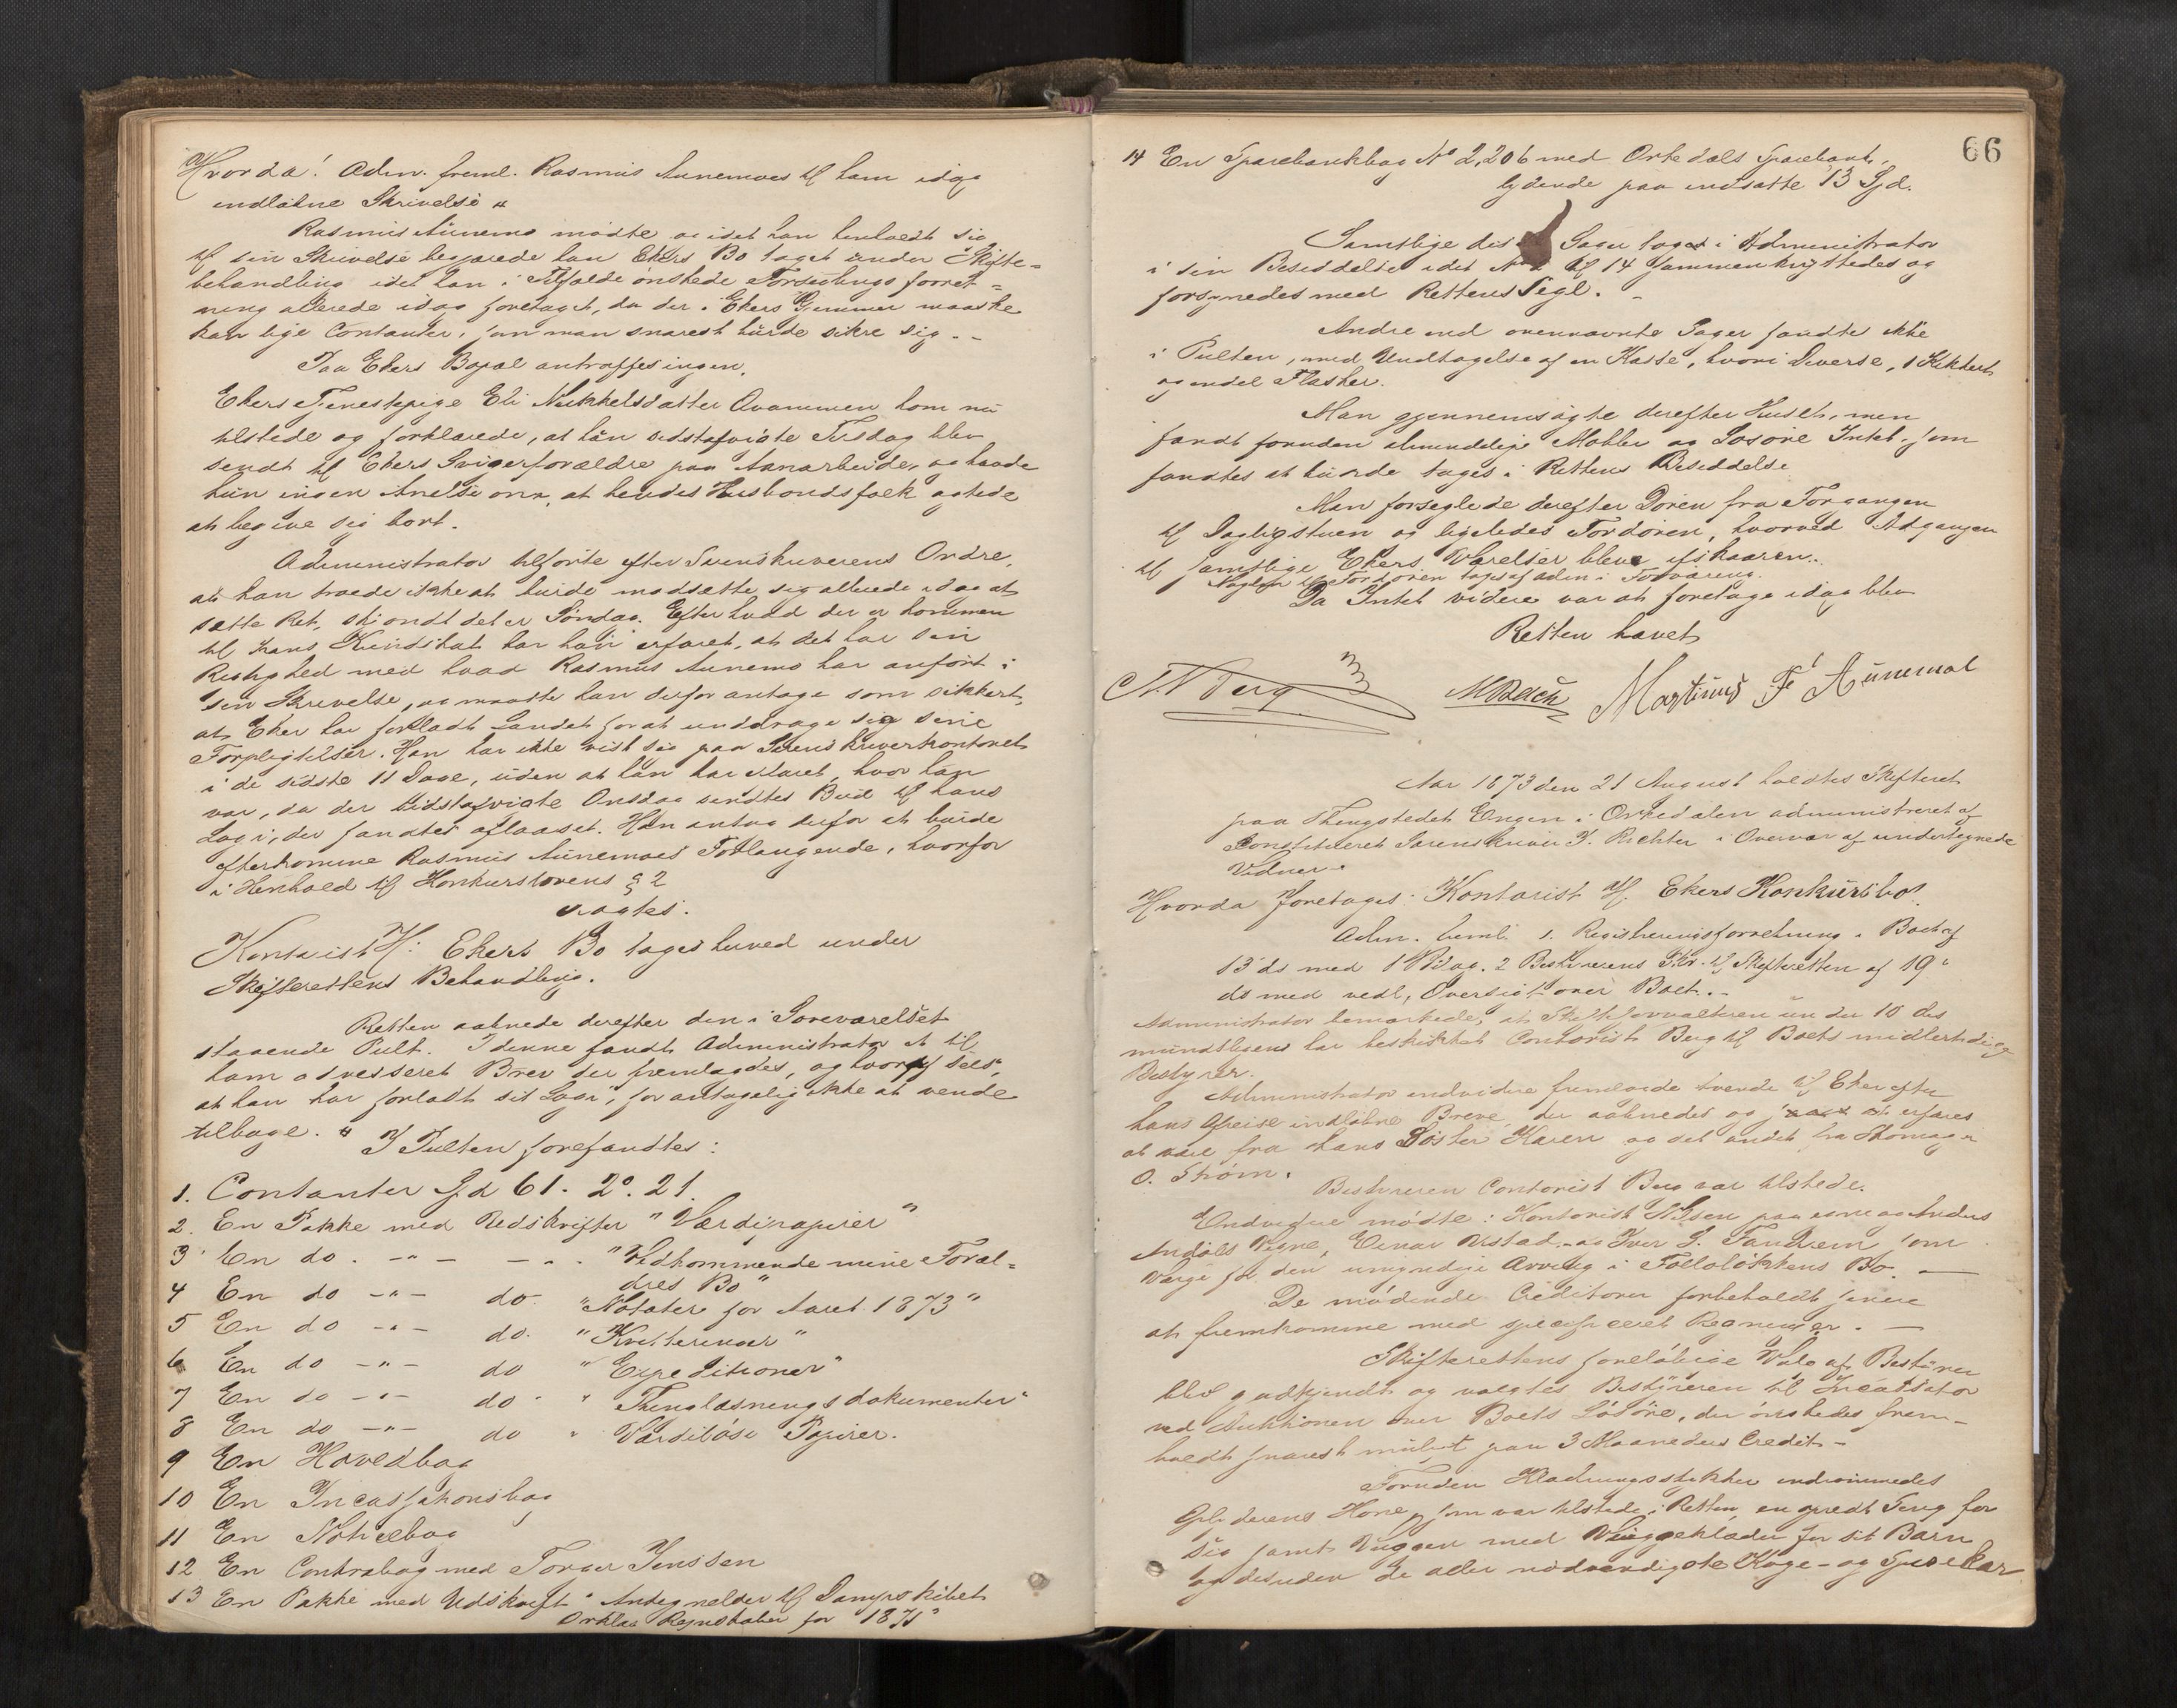 Hvorda! Adm. freml. Rasmus Aunemoes til ham idag
indløbne Skrivelse "
Rasmus Aunemo mødte og idet han henholdt sig
til sin Skrivelse begjærede han Ekers Bo taget under Skifte=
behandling idet han i Tilfælde ønskede Forseglings forret=
ning allerede idag foretaget, da der i Ekers Gjemmer maaske
kan lige Contanter, som man snarest burde sikre sig.-
Paa Ekers Bopæl antraffes ingen.
Ekers Tjenestepige Eli Mikkelsdatter Qvammen kom nu
tilstede og forklarede, at hun sidstafvigte Tirsdag blev
sendt til Ekers Svigerforældre paa Aanarbeide, og havde
hun ingen Anelse om, at hendes Husbondsfolk agtede
at begive sig bort.
Administrator tilførte efter Sorenskriverens Ordre,
at han troede ikke at burde modsætte sig allerede idag at
sætte Ret, skjøndt det er Søndag. Efter hvad der er kommen
til hans Kundskab har han erfaret, at det har sin
Rigtighed med hvad Rasmus Aunemo har anført i
sin Skrivelse, og maatte han derfor antage som sikkert,
at Eker har forladt Landet for at unddrage sig sine
Forpligtelser. Han har ikke vist sig paa Sorenskriverkontoret
i de sidste 11 Dage, uden at han har klaret, hvor han
var, da der sidstafvigte Onsdag sendtes Bud til hans
Logi, der fandtes aflaaset. Han antog derfor at burde
efterkomme Rasmus Aunemoes Forlangende, hvorfor
i Henhold til Konkurslovens § 2
vragtes:
Kontorist H: Ekers Bo tages herved under
Skifterettens Behandling.
Retten aabnede derefter den i Soveværelset
staaende Pult. I denne fandt Administrator et til
ham adresseret Brev der fremlagdes, og hvoraf sees,
at han har forladt sit Logi, for antagelig ikke at vende
tilbage. " I Pulten forefandtes:
1. Contanter Spd 61. 2º. 21.
2. En Pakke med Udskrifter "Værdipapirer"
3 En do. -"- -"- "Vedkommende mine Foræl=
dres Bo"
4 En do -"- do. "Notater for Aaret 1873"
5 En do -"- do. "Kvitteringer"
6 En do -"- do "Expeditioner"
7 En do -"- do " "Thinglæsningsdokumenter"
8 En do -"- do " Værdiløse Papirer.
9 En Hovedbog
10 En Incassationsbog
11 En Noticebog
12 En Contrabog med Torger Jenssen
13 En Pakke med Udskrift "Andegnelder til Dampskibet
Orklas Regnskaber for 1871"
66
14 En Sparebankbog Nº 2,206 med Orkedals Sparebank,
lydende paa indsatte 13 Spd.
Samtlige disse Sager toges i Administrator
i sin Besiddelse idet No 2 til 14 sammenknyttedes og
forsynedes med Rettens Segl. -
Andre end ovennævnte Sager fandtes ikke
i Pulten, med Undtagelse af en Kasse, hvori Diverse, 1 Kikkert
og endel Flasker.
Man gjennemsøgte derefter Huset, men
fandt foruden almindelige Møbler og Løsøre Intet, som
fandtes at burde tages i Rettens Besiddelse
Man forseglede derefter Døren fra Forgangen
til Dagligstuen og ligeledes Fordøren, hvorved Adgangen
til samtlige Ekers Værelser blev afskaaren..
Nøglen til Fordøren toges af Adm i Forvaring.
Da Intet videre var at foretage idag blev
Retten hævet
N. N Berg M Bach Martinus F Aunemo
Aar 1873 den 21 August holdtes Skifteret
paa Thingstedet Engen i Orkedalen administreret af
Constitueret Sorenskriver J. Richter i Overvær af undertegnede
Vidner.
Hvorda foretoges: Kontorist H. Ekers Konkursbo.
Adm. freml. 1. Registreringsforretning i Boet af
13 ds med 1 Bilag. 2 Bestyrerens Skr. til Skifteretten af 19"
ds med vedl. Oversigt over Boet.-
Administrator bemærkede, at Skifteforvalteren under 10 ds
mundtligens har beskikket Contorist Berg til Boets midlertidige
Bestyrer.
Administrator endvidere fremlagde tvende til Eker efter
hans Afreise indløbne Breve, der aabnedes og erfares
at være fra hans Søster Karen og det andet fra Skomager
O. Strøm.
Bestyreren Contorist Berg var tilstede.
Endvidere mødte: Kontorist paa egne og Anders
Andøls Vegne, Einar Ustad og Iver J. Fandrem som
Værge for den umyndige Arving i Folloløkkens Bo. -
De mødende Creditorer forbeholdt senere
at fremkomme med specificeret Regninger. -
Skifterettens foreløbige Valg af Bestyrer
blev godkjendt og valgtes Bestyreren til Incassator
ved Auktionen over Boets Løsøre, der ønskedes frem-
holdt snarest muligt paa 3 Maaneders Credit -
Foruden Klædningsstykker indrømmedes
Opbyderens Kone, som var tilstede i Retten en opredt Seng for
sig samt Vuggen med Vuggeklæder for sit Barn
og desuden de aller nødvendigste Koge- og Spisekar